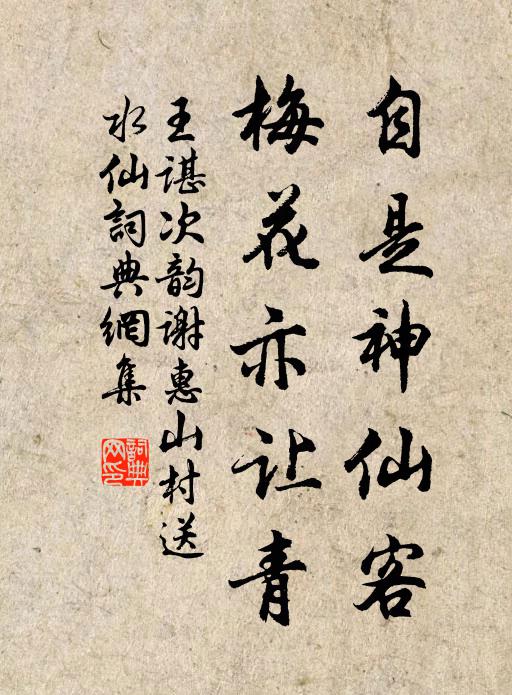 自是神仙客
梅花亦让青
王谌次韵谢惠山村送
水仙詞典網集
詞典
网印